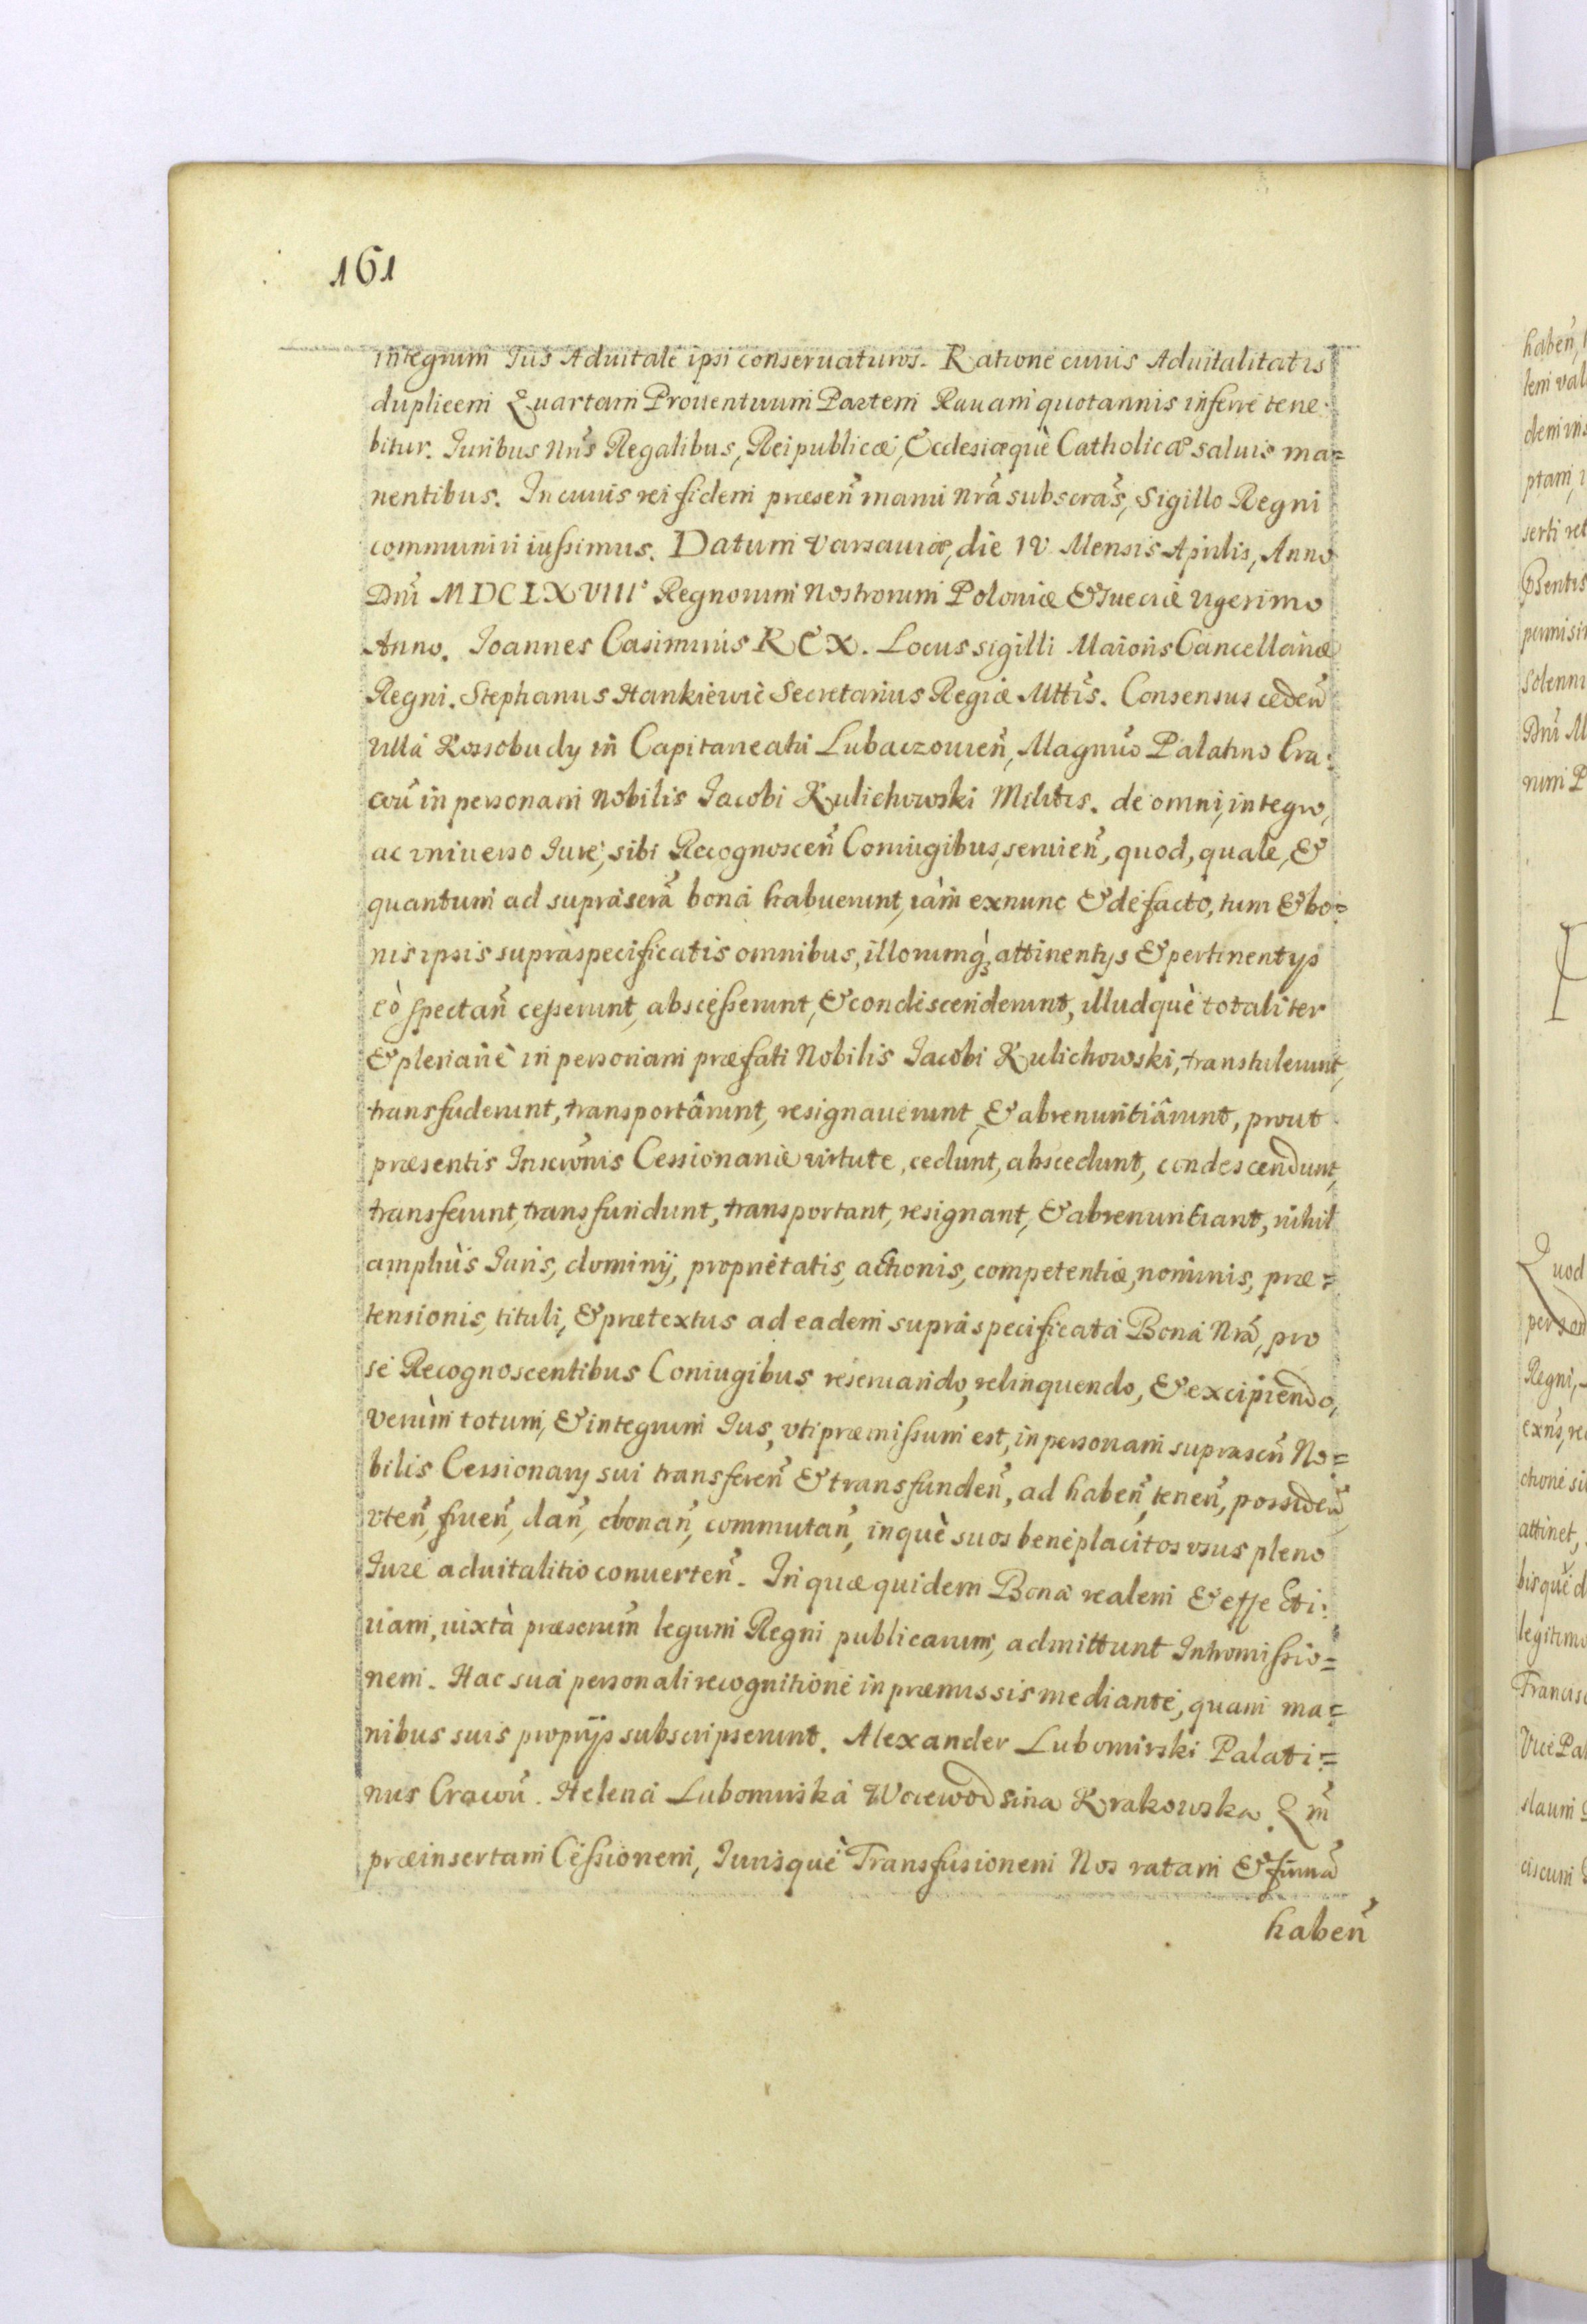 161
integrum Ius Aduitale ipsi conseruaturos. Ratione cuius Aduitalitatis
duplicem Quartam Prouentuum Partem Rauam quotannis inferre tene-
bitur. Iuribus Nris Regalibus, Reipublicæ, Ecclesiæquè Catholicæ saluis ma=
nentibus. In cuius rei fidem præsen manu nra subscras, Sigillo Regni
communiri iussimus. Datum Varsauiæ, die IV Mensis Aprilis, Anno
Dni MDCLXVIII° Regnorum Nostrorum Poloniæ & Sueciæ Vigesimo
Anno. Ioannes Casimirus REX. Locus sigilli Maioris Cancellariæ
Regni. Stephanus Hankiewic Secretarius Regiæ Mttis. Consensus ceden
Villa Kossobudy in Capitaneatu Lubaczouien, Magnco Palatino Cra:
couι in personam Nobilis Iacobi Kulichowski Militis. de omni, integro,
ac vniuerso Iure, sibi Recognoscen Coniugibus, seruien, quod, quale, &
quantum ad supra scra bona habuerunt, iàm exnunc & de facto, tum & bo=
nis ipsis supraspecificatis omnibus, illorumq; attinentijs & pertinentijs
eò spectan cesserunt, abscesserunt, & condescenderunt, illudquè totaliter
& plenariè in personam præfati Nobilis Iacobi Kulichowski, transtulerunt,
transfuderunt, transportârunt, resignauerunt, & abrenuntiârunt, prout
præsentis Inscronis Cessionariæ virtute, cedunt, abscedunt, condescendunt,
transferunt, transfundunt, transportant, resignant, & abrenuntiant, nihil
ampliùs Iuris, dominij, proprietatis, actionis, competentiæ, nominis, præ=
tensionis, tituli, & prætextus ad eadem supraspecificata Bona Nra, pro
se Recognoscentibus Coniugibus reseruando, relinquendo, & excipiendo,
Verùm totum, & integrum Ius, vti præmissum est, in personam suprascri No=
bilis Cessionarij sui transferen & transfunden, ad haben, tenen, possiden,
vten, fruen, dan, donan, commutan, inquè suos beneplacitos vsus pleno
Iure aduitalitio conuerten. In quæ quidem Bona realem & effecti:
uam, iuxtà præscrum legum Regni publicarum, admittunt Intromissio=
nem. Hac sua personali recognitione in præmissis mediante, quam ma=
nibus suis proprijs subscripserunt. Alexander Lubomirski Palati=
nus Cracou. Helena Lubomirska Woiewodsina Krakowska. Qm
præinsertam Cessionem, Iurisquè Transfusionem Nos ratam & firma
haben